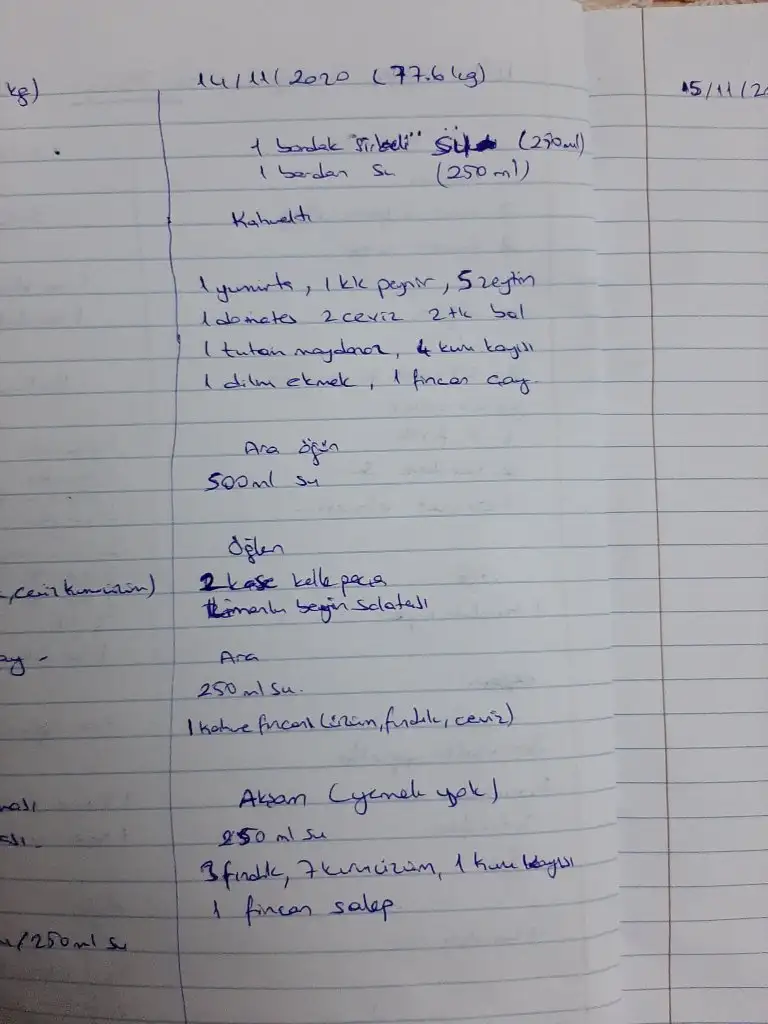 kg)
14/11/2020 (77.6 kg)
15/11/20
1 bardak "sirkeli" su (250ml)
1 bardan su (250 ml)
Kahvaltı
1 yumurta, 1 kk peynir, 5 zeytin
1 domates 2 ceviz 2 tk bal
1 tutam maydanoz, 4 kuru kayısı
1 dilim ekmek, 1 fincan çay
Ara öğün
500ml su
Öğlen
2 kase kelle paça
limonlu beyin salatası
, ceviz kuru üzüm)
Ara
ay -
250 ml su.
1 kahve fincanı (üzüm, fındık, ceviz)
Akşam (yemek yok)
ması
250 ml su
ası.
3 fındık, 7 kuru üzüm, 1 kuru kayısı
1 fincan salep
/250ml su